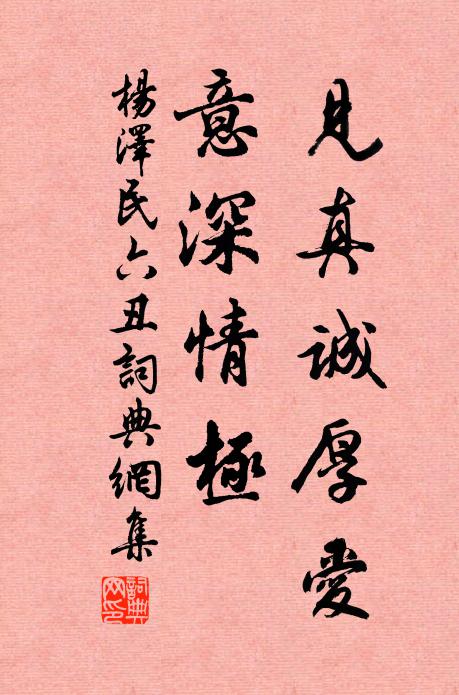 見真誠厚愛
意深情極
楊澤民六丑詞典網集
詞典網印